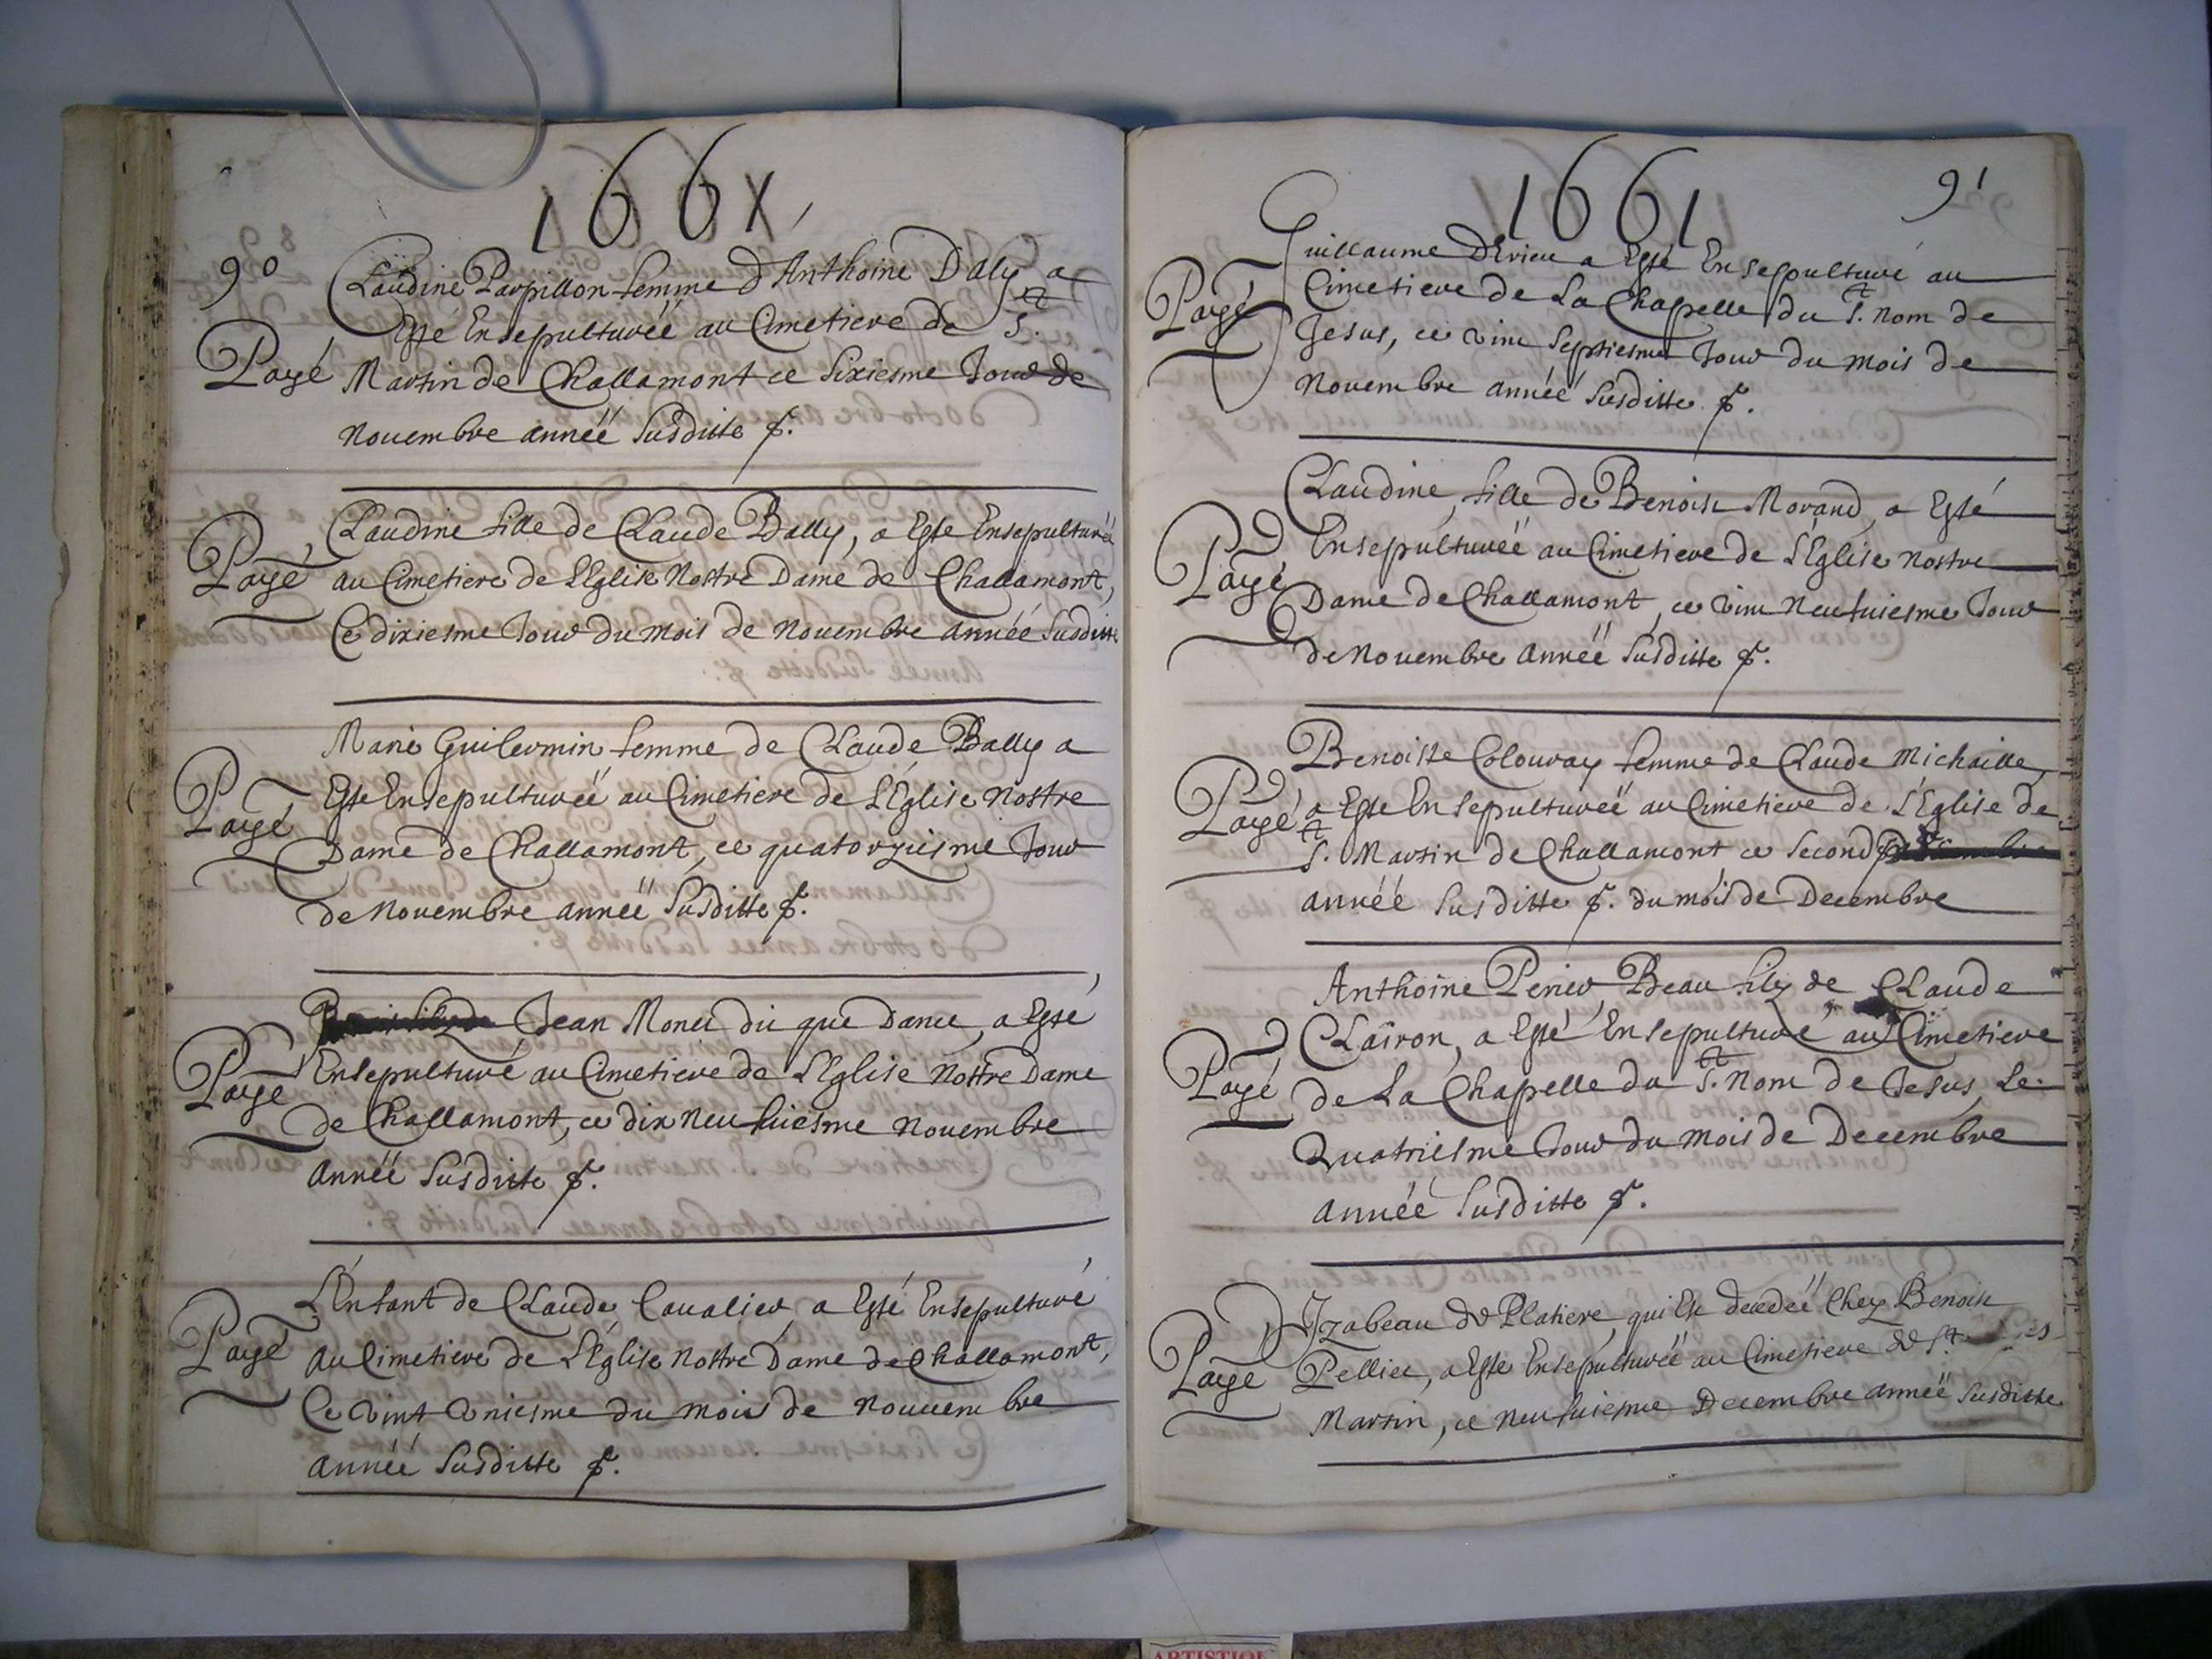 1661
90
Claudine Parpillon femme d'Anthoine Daly a
Esté Ensepulturéë au Cimetiere de St.
Payé
Martin de Challamont ce Sixiesme Jour de
Nouembre annéë Susditte &.
Claudine fille de Claude Bally, a Esté Ensepulturéë
Payé
au Cimetiere de L'Eglise Nostre Dame de Challamont,
Ce dixiesme Jour du mois de Nouembre Annéë Susditte
Marie Guilermin femme de Claude Bally a
Payé
Esté Ensepulturéë au Cimetiere de L'Eglise Nostre
Dame de Challamont, ce quatorziesme Jour
de Nouembre annéë Susditte &.
Jean Monet dit que Dame, a Esté
Payé
Ensepulturé au Cimetiere de L'Eglise Nostre Dame
de Challamont, ce dix neufuiesme Nouembre
Annéë Susditte &.
L'Enfant de Claude Caualier a Esté Ensepulturé
Payé
Au Cimetiere de L'Eglise Nostre Dame de Challamont,
Ce vint vniesme du mois de Nouuembre
Annéë Susditte &.
1661
91
Guillaume DErieu a Esté Ensepulturé au
Payé
Cimetiere de La Chapelle du St. Nom de
Jesus, ce vint Septiesme Jour du mois de
Nouembre Annéë Susditte &.
Claudine fille de Benoist Morand, a Esté
Payé
Ensepulturéë au Cimetiere de L'Eglise Nostre
Dame de Challamont, ce vint Neufuiesme Jour
de Nouembre Annéë Susditte &.
Benoiste Colouray femme de Claude Michaille,
Payé
a Esté Ensepulturéë au Cimetiere de L'Eglise de
St. Martin de Challamont ce Second
annéë Susditte &. du mois de Decembre
Anthoine Perier Beau filz de Claude
Payé
Clairon, a Esté Ensepulturé au Cimetiere
de La Chapelle du St. Nom de Jesus, Le
Quatriesme Jour du mois de Decembre
Annéë Susditte &.
Izabeau de Platiere, qui Est decedéë Chez Benoist
Payé
Pellier, a Esté Ensepulturéë au Cimetiere de St.
Martin, ce Neufuiesme Decembre annéë Susditte